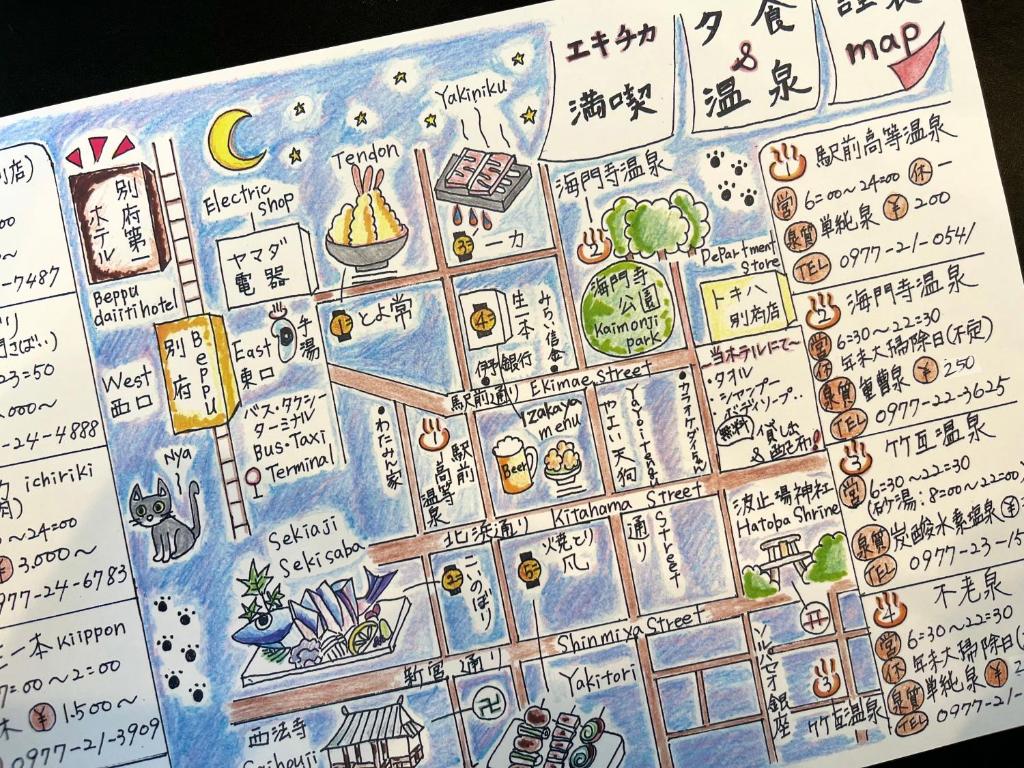 エキチカ
満喫
夕食
&
温泉
map
別府第一
ホテル
Beppu
daiitihotel
Electric
shop
ヤマダ
電器
Tendon
1
とよ常
Yakiniku
3
一力
海門寺温泉
2
海門寺
公園
Kaimonji
park
Department
store
トキハ
別府店
4
生一本
みらい信金
伊予銀行
West
西口
別府
Beppu
East
東口
手湯
バス・タクシー
ターミナル
Bus・Taxi
Terminal
Nya
駅前通り Ekimae Street
・わたみん家
駅前
高等
温泉
Izakaya
menu
Beer
やよい天狗
Yayoi Tengu
当ホテルにて〜
・タオル
・シャンプー
・ボディソープ・・
無料
貸し出
&
北浜通り Kitahama Street
Sekiaji
Sekisaba
2
こいのぼり
5
通り
Street
波止場神社
Hatoba Shrine
新宮通り Shinmiya Street
西法寺
Saihouji
卍
Yakitori
銀座
竹瓦温泉
1
駅前高等温泉
営 6=00〜24=00 休 ー
泉質 単純泉 ¥ 200
TEL 0977-21-0541
2
海門寺温泉
営 6=30〜22=30
休 年末大掃除日(不定)
泉質 重曹泉 ¥ 250
TEL 0977-22-3625
3
竹瓦温泉
営 6=30〜22=30
(砂湯:8=00〜22=00)
泉質 炭酸水素塩温泉 ¥
TEL 0977-23-15
4
不老泉
営 6=30〜22=30
休 年末大掃除日
泉質 単純泉 ¥ 2
TEL 0977-21-
-7487
23=50
-24-4888
ichiriki
〜24=00
¥ 3.000〜
977-24-6783
生一本 kiippon
7=00〜2=00
休 ¥ 1.500〜
0977-21-3909